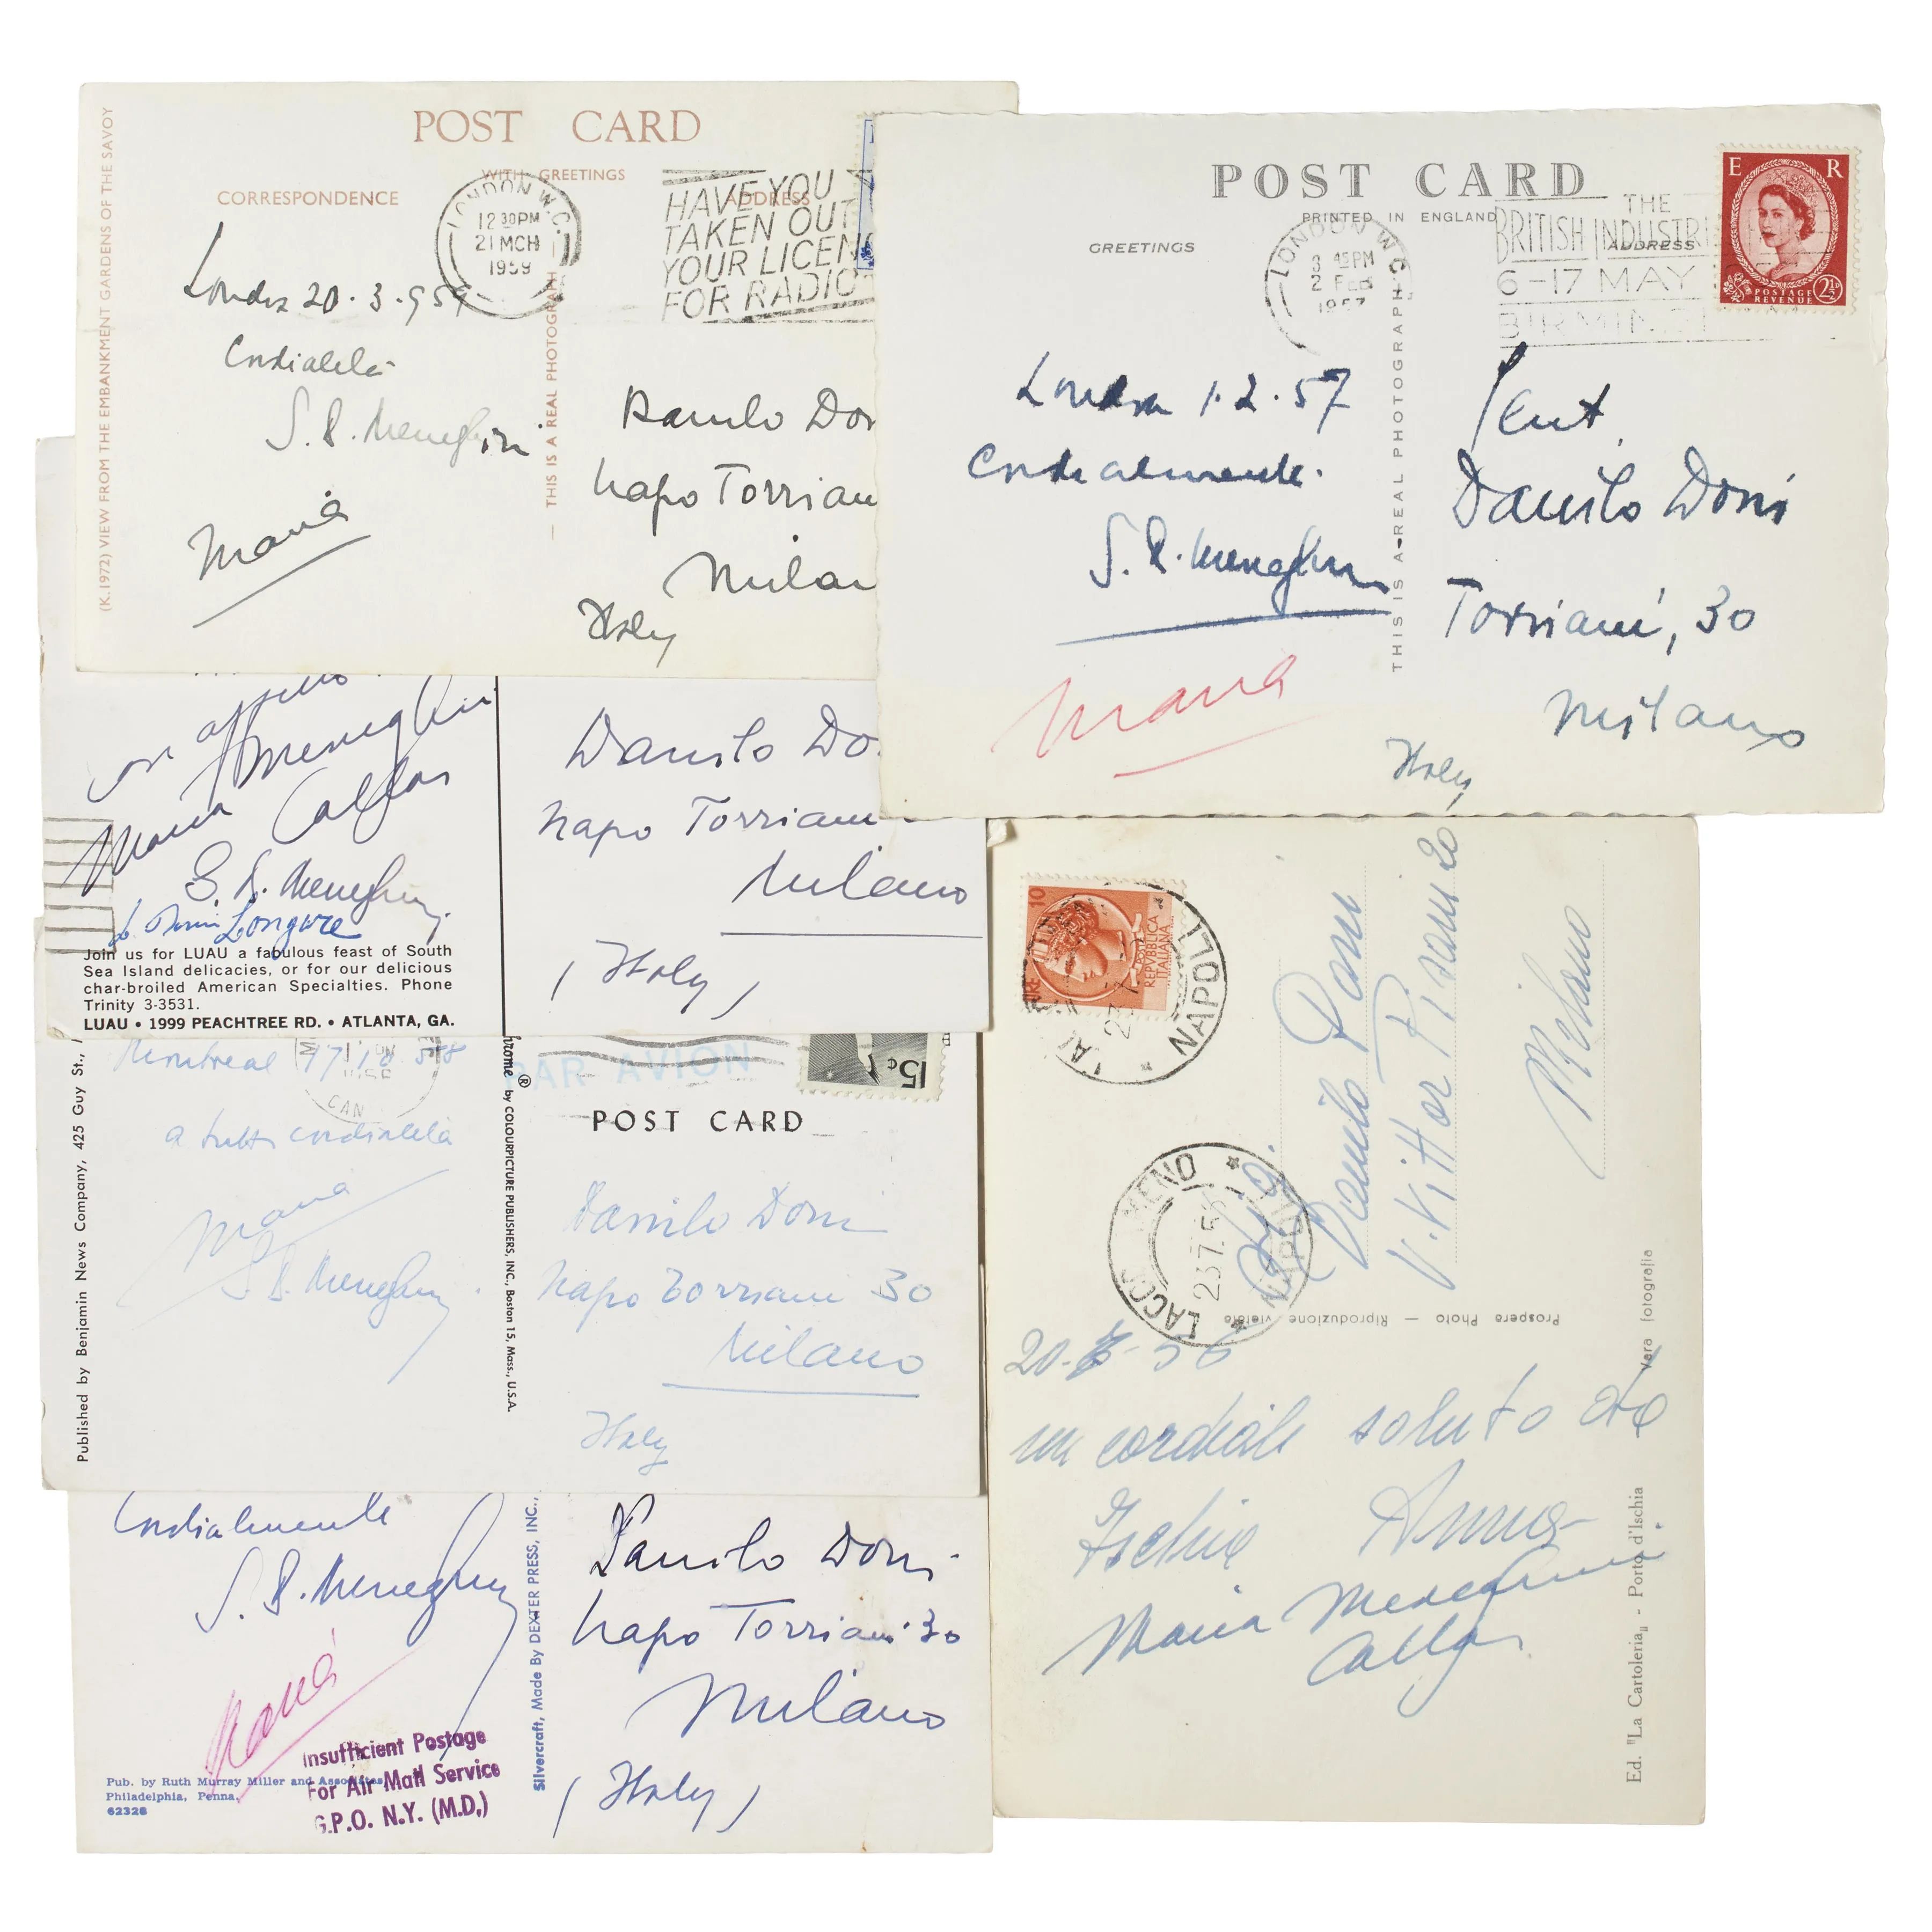 POST CARD
WITH GREETINGS
CORRESPONDENCE
ADDRESS
(K.1972) VIEW FROM THE EMBANKMENT GARDENS OF THE SAVOY
LONDON W.C.
12 30PM
21 MCH
1959
HAVE YOU
TAKEN OUT
YOUR LICEN
FOR RADIO
Londra 20.3.959
Cordialità
G. B. Meneghini
Maria
THIS IS A REAL PHOTOGRAPH
Danilo Don
Napo Torrian
Milan
Italy
POST CARD
PRINTED IN ENGLAND
GREETINGS
ADDRESS
LONDON W.C.
3 45PM
2 FEB
1957
THE
BRITISH INDUSTRI
6-17 MAY
BIRMING
E R
POSTAGE
REVENUE
2½
Londra 1.2.57
Cordialmente.
G. B. Meneghini
Maria
THIS IS A REAL PHOTOGRAPH
Danilo Doni
Torriani, 30
Milano
Italy
con affetto
Maria Meneghini
Callas
G. B. Meneghini
Longwe
Join us for LUAU a fabulous feast of South
Sea Island delicacies, or for our delicious
char-broiled American Specialties. Phone
Trinity 3-3531.
LUAU • 1999 PEACHTREE RD. • ATLANTA, GA.
Danilo Do
Napo Torriani
Milano
(Italy)
Montreal 17 10 58
CAN
a tutti cordialità
Maria
G B. Meneghini
Published by Benjamin News Company, 425 Guy St.,
chrome ® by COLOURPICTURE PUBLISHERS, INC., Boston 15, Mass., U.S.A.
PAR AVION
15¢
POST CARD
Danilo Doni
Napo Torriani 30
Milano
Italy
Cordialmente
G. B. Meneghini
Maria
Pub. by Ruth Murray Miller and Associates
Philadelphia, Penna.
62328
Insufficient Postage
For Air Mail Service
G.P.O. N.Y. (M.D.)
Silvercraft, Made By DEXTER PRESS, INC.,
Danilo Doni
Napo Torriani 30
Milano
(Italy)
10
LIRE
POSTE
REPVBBLICA
ITALIANA
NAPOLI
LACCO AMENO
23.7.56
NAPOLI
Danilo Doni
V. Vittor Pisani 20
Milano
Prospero Photo — Riproduzione vietata
Vera fotografia
Ed. "La Cartoleria" - Porto d'Ischia
20-7-56
un cordiale saluto da
Ischia
Anna
Maria Meneghini
Callas